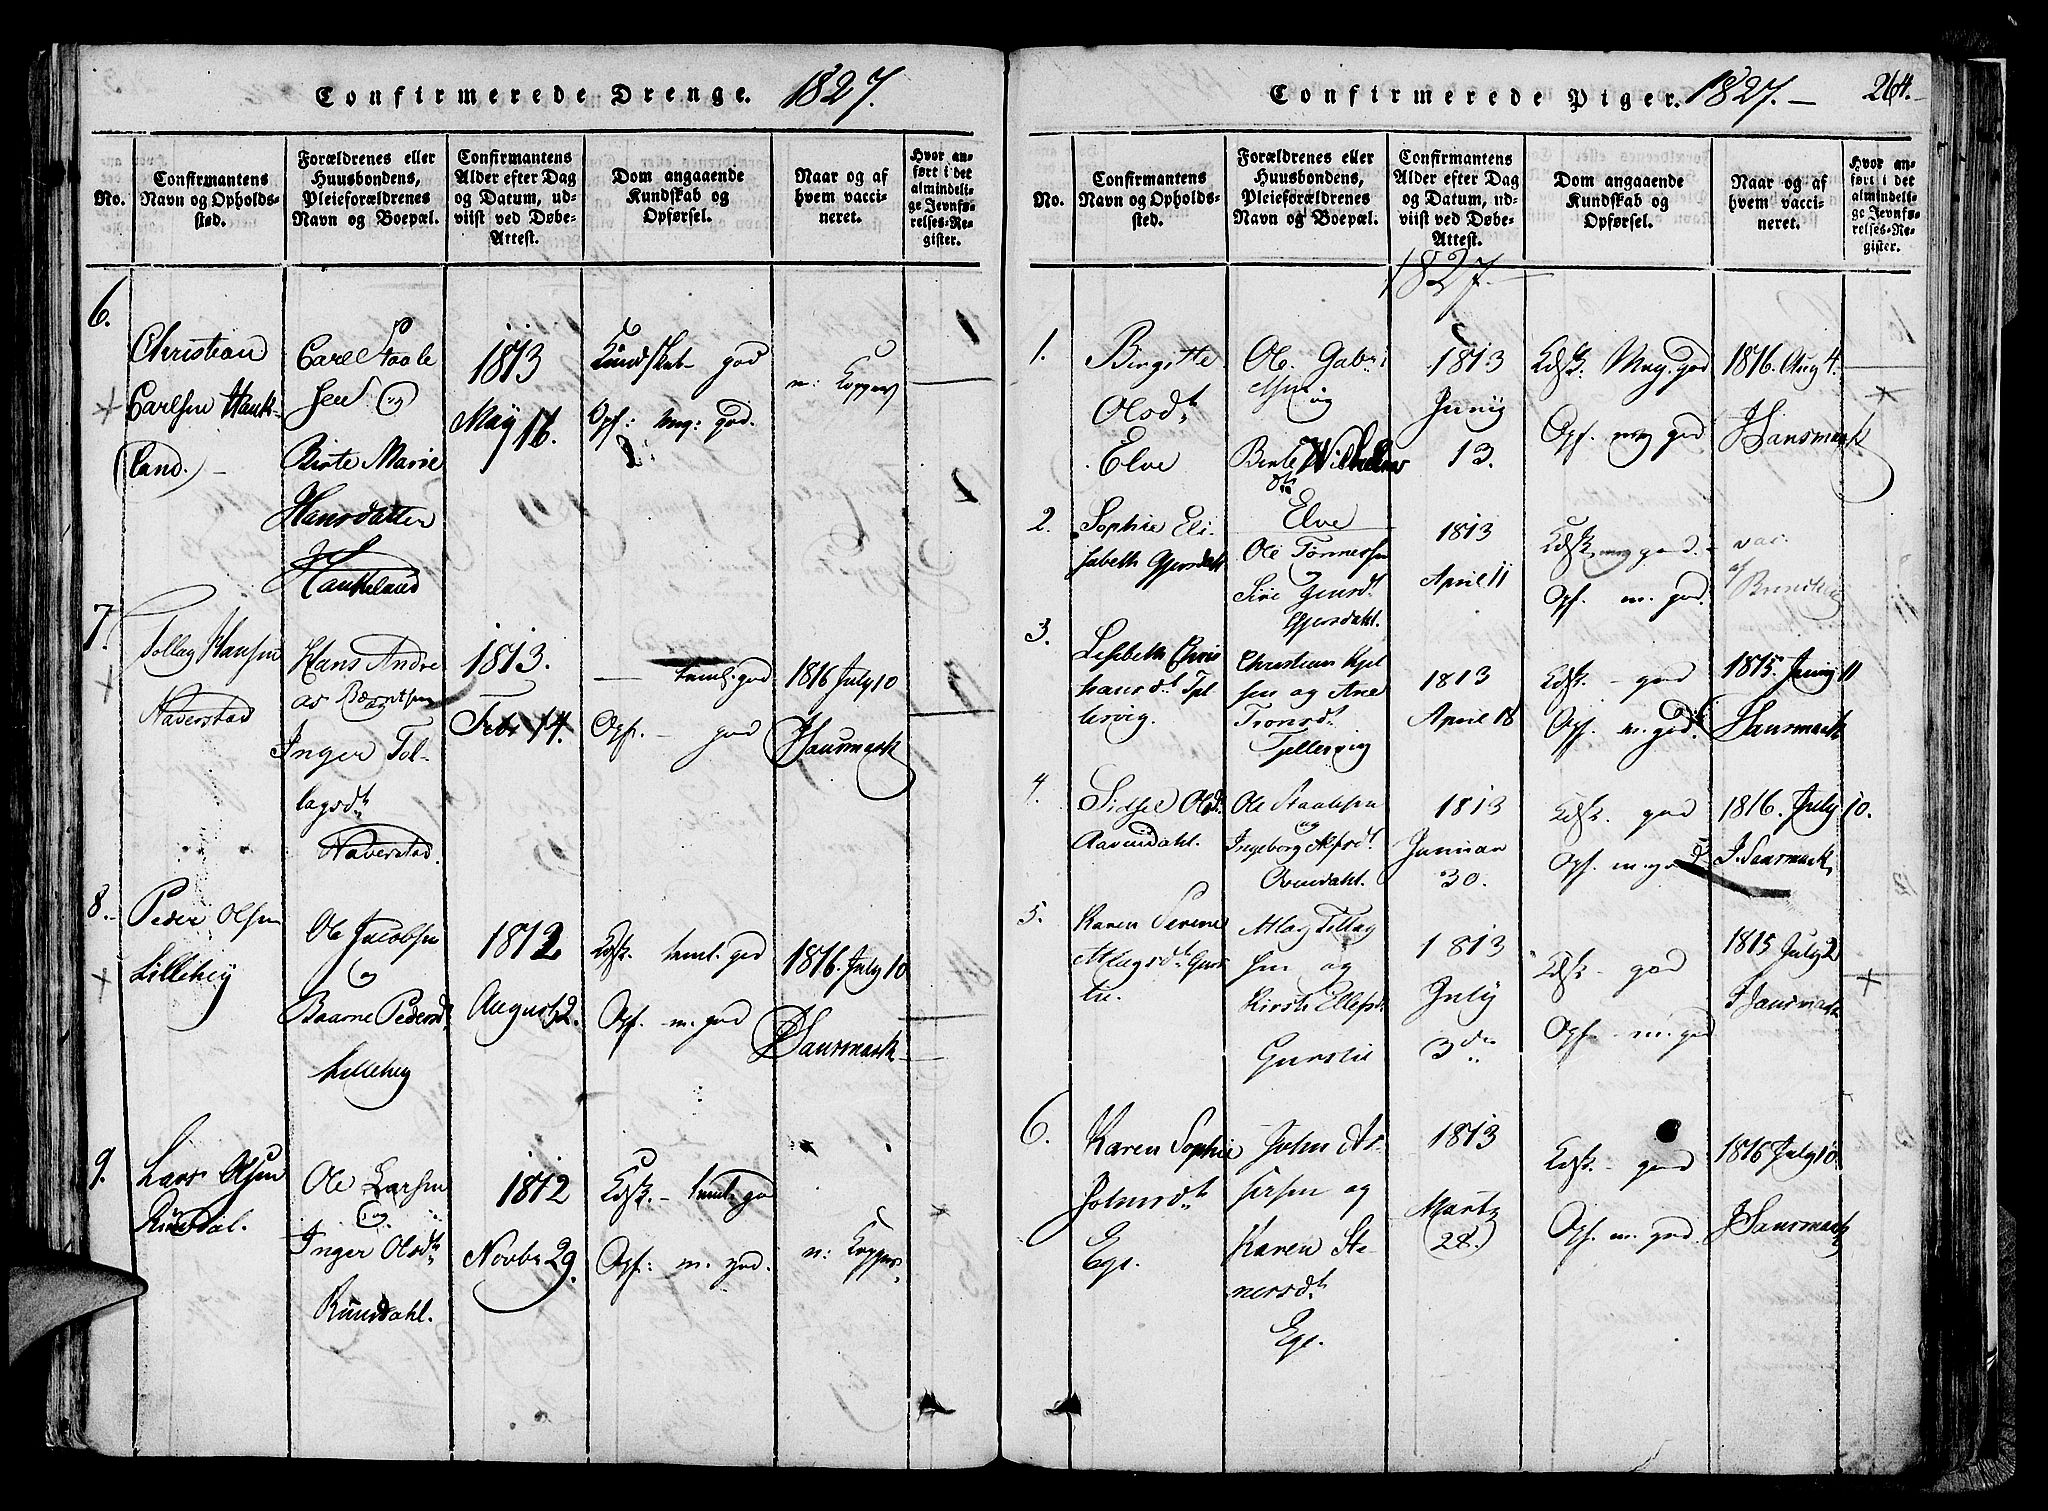 Confirmerede Drenge. 1827.
No.
Confirmantens
Navn og Opholds-
sted.
Forældrenes eller
Huusbondens,
Pleieforældrenes
Navn og Boepæl.
Confirmantens
Alder efter Dag
og Datum, ud-
viist ved Døbe-
Attest.
Dom angaaende
Kundskab og
Opførsel.
Naar og af
hvem vacci-
neret.
Hvor an-
ført i det
almindeli-
ge Jevnfø-
relses-Re-
gister.
6.
Christian
Carlsen Hauk-
land.
Carl Staale
sen og
Birte Marie
Hansdatter
Haukeland
1813
May 16.
Kundskab god
Opf: mg: god.
n: Kopper
7.
Tollag Hansen
Naverstad
Hans Andre
as Berntsen
Inger Tol-
lagsdt
Naverstad.
1813.
Febr 14.
teml. god
Opf. - god
1816 July 10
J Sansmark
8.
Peder Olsen
Lillehey
Ole Jacobsen
og
Baarne Pedersd
Lillehey
1812
August 2.
Kdsk. teml. god
Opf. m. god
1816. July 10
J Sansmark
9.
Lars Olsen
Ruusdal.
Ole Larsen
og
Inger Olsdt
Ruusdahl.
1812
Novbr 29.
Kdsk. - teml. god
Opf: m. god.
n: Kopper
Confirmerede Piger. 1827. - 264.
No.
Confirmantens
Navn og Opholds-
sted.
Forældrenes eller
Huusbondens,
Pleieforældrenes
Navn og Boepæl.
Confirmantens
Alder efter Dag
og Datum, ud-
viist ved Døbe-
Attest.
Dom angaaende
Kundskab og
Opførsel.
Naar og af
hvem vacci-
neret.
Hvor an-
ført i det
almindeli-
ge Jevnfø-
relses-Re-
gister.
1827.
1.
Birgitte
Olsdt
Elve
Ole Gabri
og
Elve
1813
Juny
13.
Kdsk. Meg. god
Opf. meg god
1816. Aug 4.
J Sansmark
2.
Sophie Eli
sabeth Gjersdahl
Ole Tønnessen
og
Siri Jensdt
Gjersdahl.
1813
April 11
Kdsk. meg god.
Opf. m. god.
vac.
af
3.
Lisebeth Chris
tiansdt Tjel
lesvig.
Christian Kjel
sen og Ane
Tronsdt
Tjellesvig
1813
April 18
Kdsk. - god
Opf. m. god.
1815. Juny 11
J Sansmark
4.
Sidsel Olsd.
Aavendahl.
Ole Staalesen
og
Ingeborg Alfsdt
Ovendahl.
1813
Januar
30.
Kdsk. god
Opf. m. god
1816. July 10.
J. Sansmark
5.
Karen Serine
Atlagsdt
Atlag Tollag
sen og
Kirsti Ellefsd
1813
July
3de
Kdsk. - god
Opf. - m. god
1815 July 2
J Sansmark
6.
Karen Sophie
Johnsdt
Ege.
John As-
sersen og
Karen Ste-
nersdt
Ege.
1813
Martz
28.
Kdsk. - god
Opf. m. god.
1816 July 10.
J Sansmark